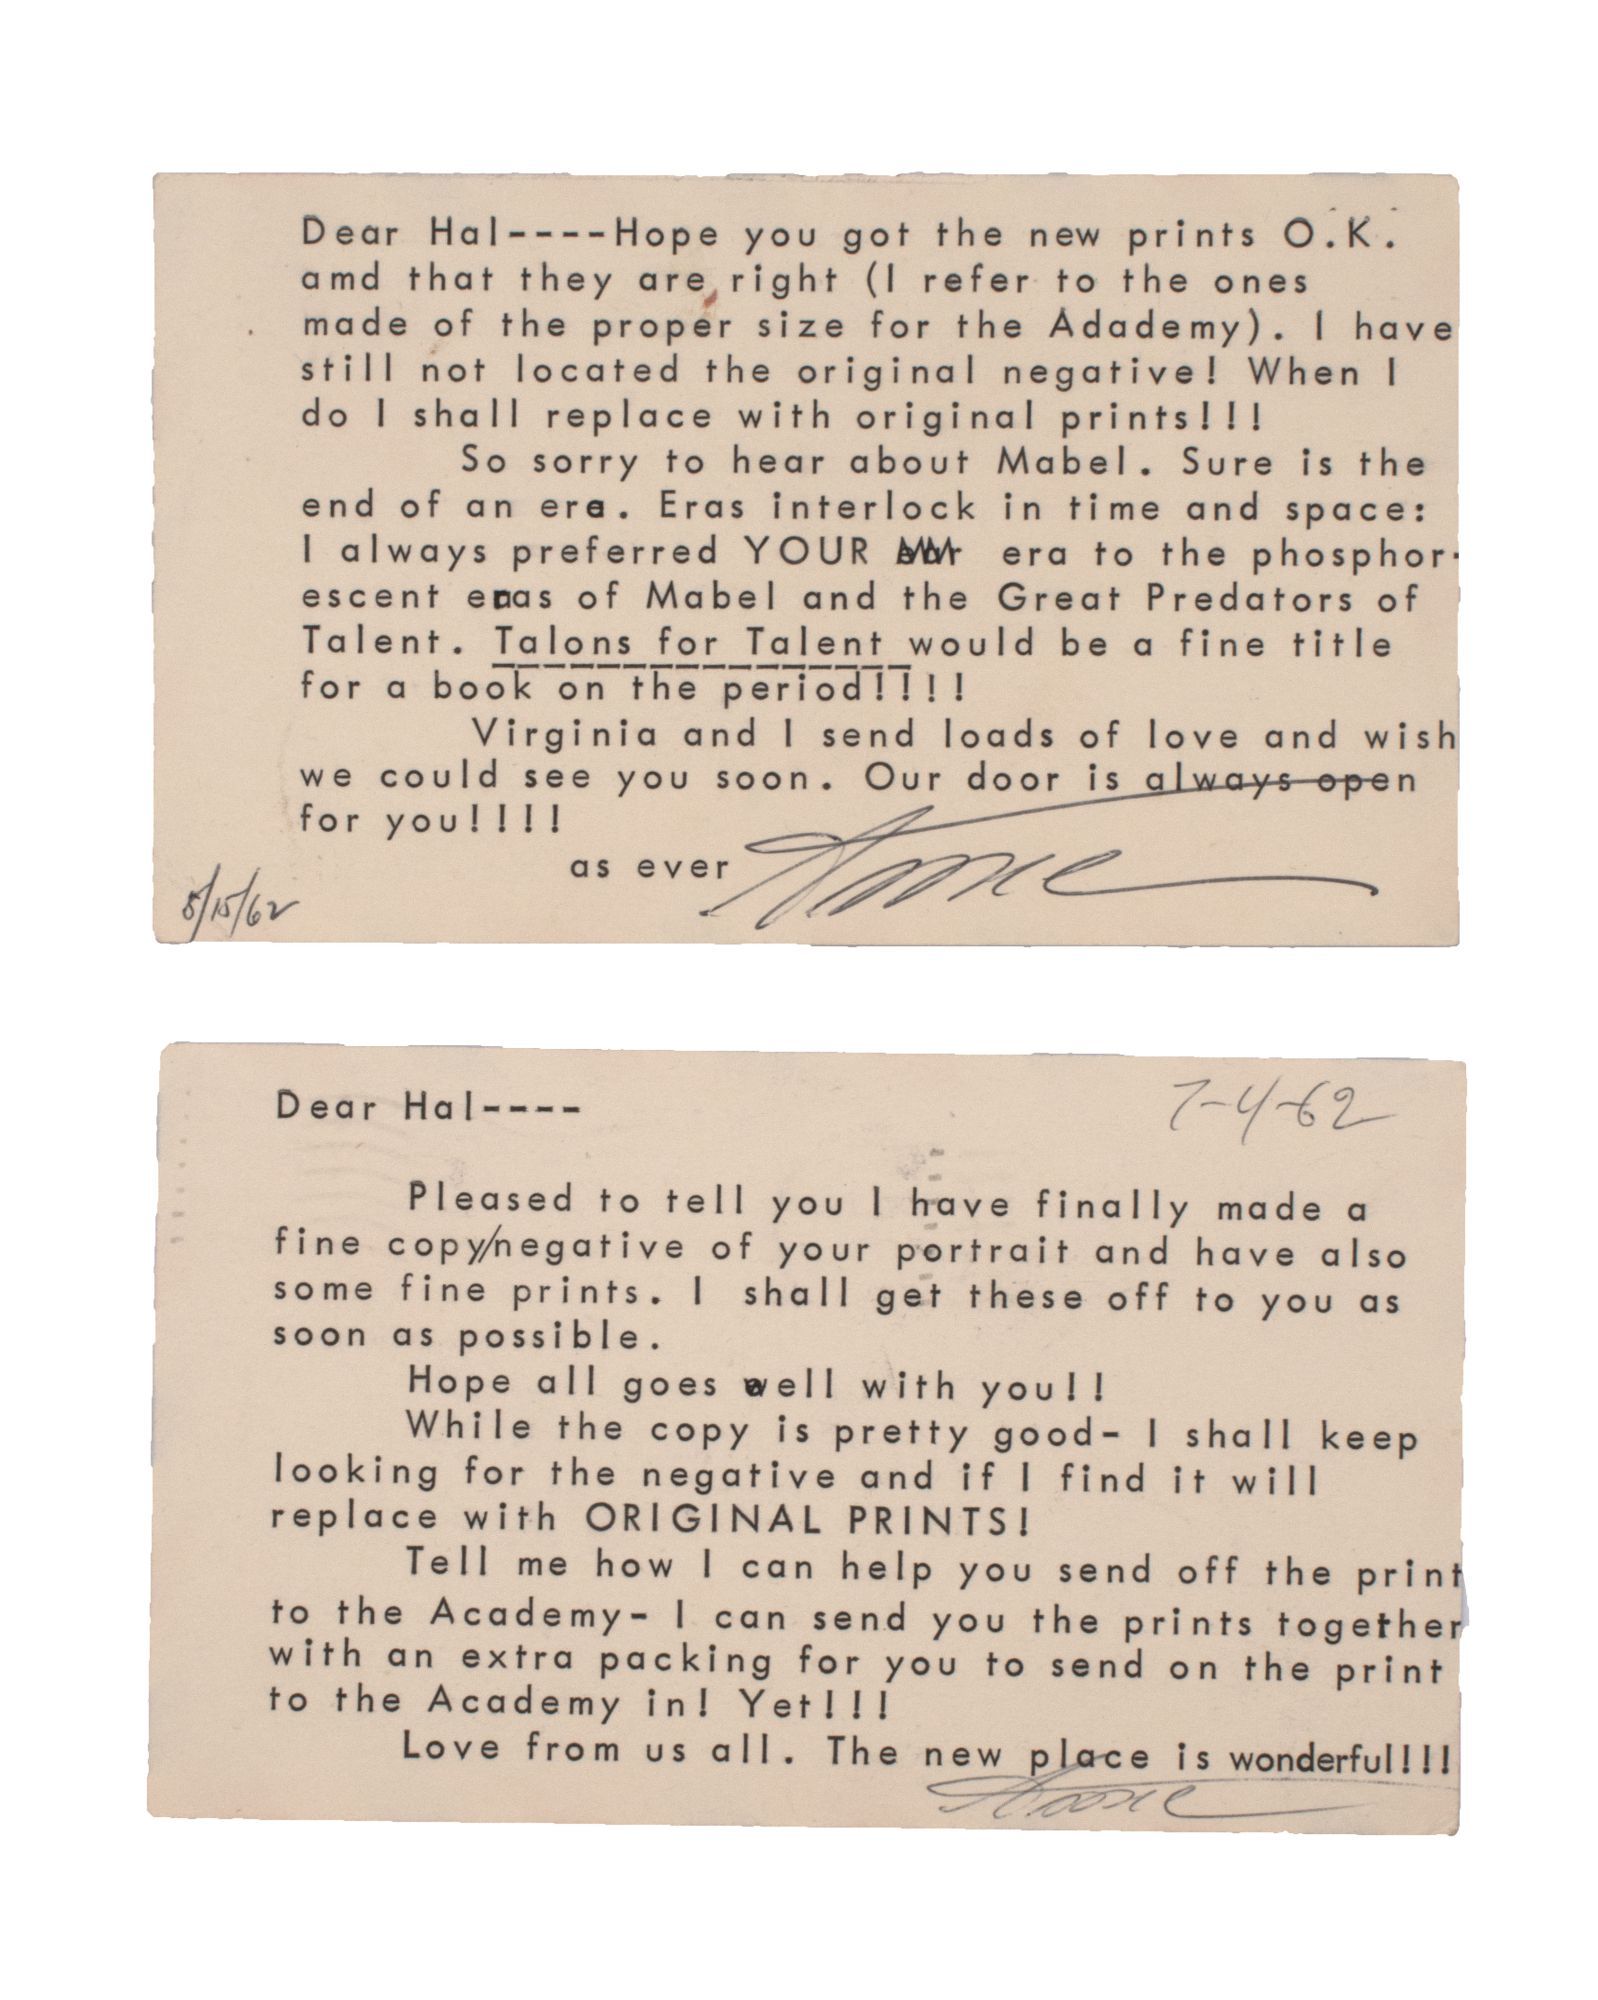 Dear Hal----Hope you got the new prints O.K.
amd that they are right (I refer to the ones
made of the proper size for the Adademy). I have
still not located the original negative! When I
do I shall replace with original prints!!!
So sorry to hear about Mabel. Sure is the
end of an era. Eras interlock in time and space:
I always preferred YOUR era to the phosphor-
escent eras of Mabel and the Great Predators of
Talent. Talons for Talent would be a fine title
for a book on the period!!!!
Virginia and I send loads of love and wish
we could see you soon. Our door is always open
for you!!!!
as ever
5/15/62
Dear Hal----
7-4-62
Pleased to tell you I have finally made a
fine copy/negative of your portrait and have also
some fine prints. I shall get these off to you as
soon as possible.
Hope all goes well with you!!
While the copy is pretty good- I shall keep
looking for the negative and if I find it will
replace with ORIGINAL PRINTS!
Tell me how I can help you send off the print
to the Academy- I can send you the prints together
with an extra packing for you to send on the print
to the Academy in! Yet!!!
Love from us all. The new place is wonderful!!!